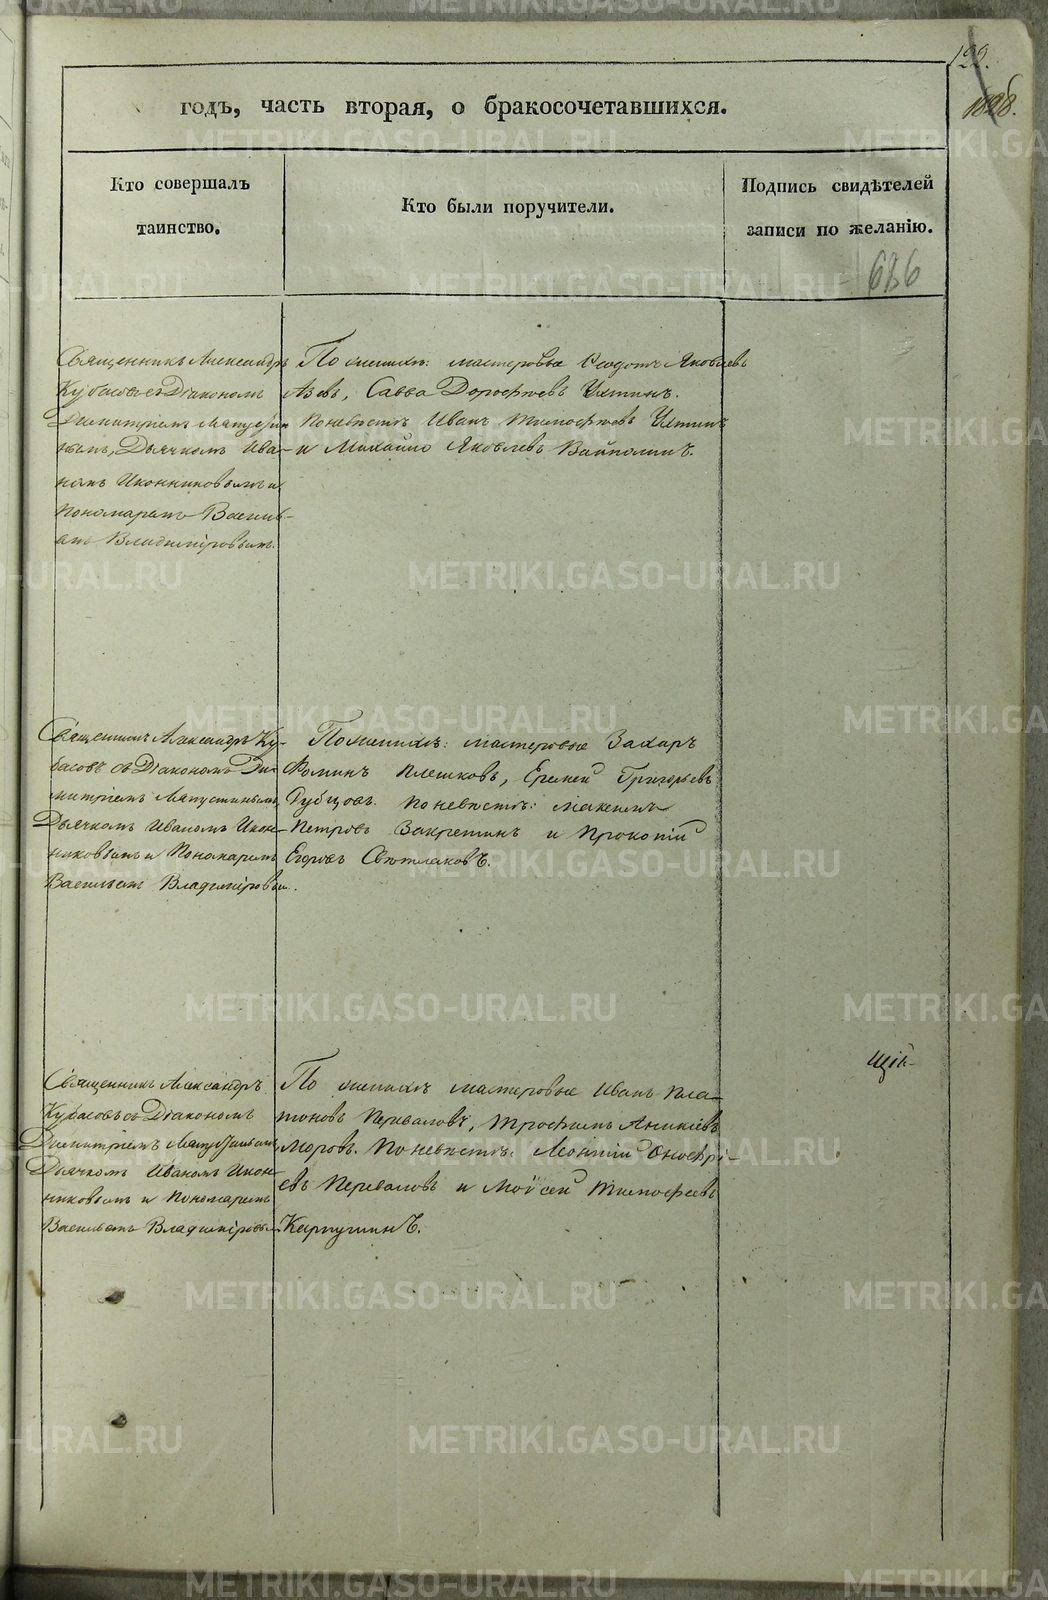 122.
1828.
годъ, часть вторая, о бракосочетавшихся.
Кто совершалъ
таинство.
Кто были поручители.
Подпись свидѣтелей
записи по желанію.
686
Священникъ Александръ
Кубасовъ съ Діакономъ
Димитріемъ Мапусти
нымъ, Дьячкомъ Ива-
номъ Иконниковымъ и
Пономаремъ Василь-
емъ Владиміровымъ.
По женихѣ: мастеровые Ѳеодотъ Яковлевъ
Азевъ, Савва Дорофѣевъ Ухтинъ.
По невѣстѣ Иванъ Тимофѣевъ Ухтинъ
и Михайло Яковлевъ Вайполинъ.
Священникъ Александръ Ку-
басовъ съ Діакономъ Ди-
митріемъ Мапустинымъ,
Дьячкомъ Иваномъ Икон-
никовымъ и Пономаремъ
Васильемъ Владиміровы.
По женихѣ: мастеровые Захаръ
Фоминъ Плешковъ, Еремей Григорьевъ
Рубцовъ. по невѣстѣ: Максимъ
Петровъ Закретинъ и Прокопій
Егоровъ Свѣтлаковъ.
Священникъ Александръ
Кубасовъ съ Діакономъ
Димитріемъ Мапустинымъ
Дьячкомъ Иваномъ Икон-
никовымъ и Пономаремъ
Васильемъ Владиміровы
По женихѣ мастеровые Иванъ Пла-
тоновъ Переваловъ, Трофимъ Аникіевъ
Моровъ. По невѣстѣ: Леонтій Онофрі-
евъ Переваловъ и Моѵсей Тимофеевъ
Карпушинъ.
щій-
METRIKI.GASO-URAL.RU